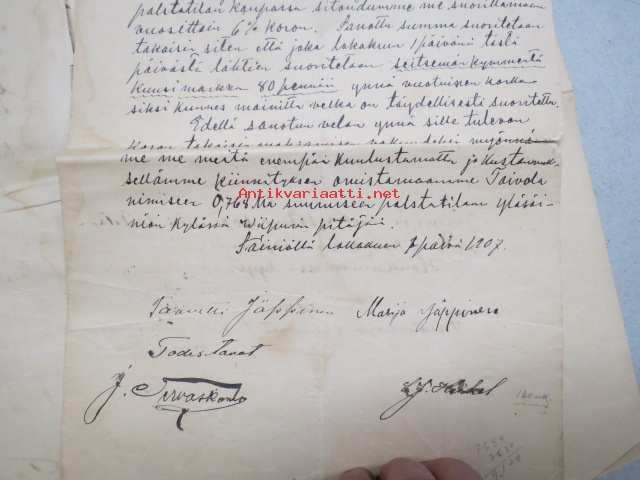 palstatilan kaupassa sitoudumme me suorittamaan
vuosittain 6% koron. Sanottu summa suoritetaan
takaisin siten että joka lokakuun 1 päivänä tästä
päivästä lähtien suoritetaan seitsemänkymmentä
kuusi markkaa 80 penniä ynnä vuotuisen koron
siksi kunnes mainittu velka on täydellisesti suoritettu.
Edellä sanotun velan ynnä sille tulevan
koron takaisin maksamisen vakuudeksi myönnäm-
me me meitä enempää kuulustamatta ja kustannuk-
sellamme kiinnityksen omistamaamme Toivola
nimiseen 0,768 Ma suuruiseen palstatilaan yläsäi-
niön kylässä Wiipurin pitäjää.
Säiniöllä lokakuun 1 päivä 1907.
Antikvariaatti.net
Taavetti Jäppinen Marija Jäppinen
Todistavat
J. Tervaskanto